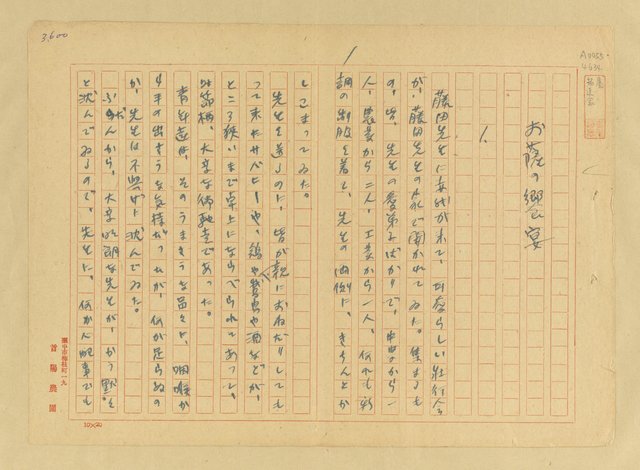 3,600
A0035
4934
お薩の饗宴
1.
藤田先生に女代が来て、ささやらしい壮行会
が、藤田先生のお家で開かれてゐた。集まるも
の、皆、先生の愛弟子ばかりで、中学から一
人、農業から二人、工業から一人、何れも新
調の制服を着て、先生の両側に、きちんとか
しこまってゐた。
先生を送るのに、皆が親におねだりしても
って来たサバヒーや、鶏や鵞鳥や酒などが、
ところ狭いまで卓上にならべられてあって、
時節柄、大変な御馳走であった。
青年達は、そのうまさうな品々に、咽喉から
手の出さうな気持だったが、何が足らぬの
か、先生は不興げに沈んでゐた。
ふだんから、大変明朗な先生が、かう黙々
と沈んでゐるので、先生に、何か心配事でも
臺中市梅枝町一九
首陽農園
10×20